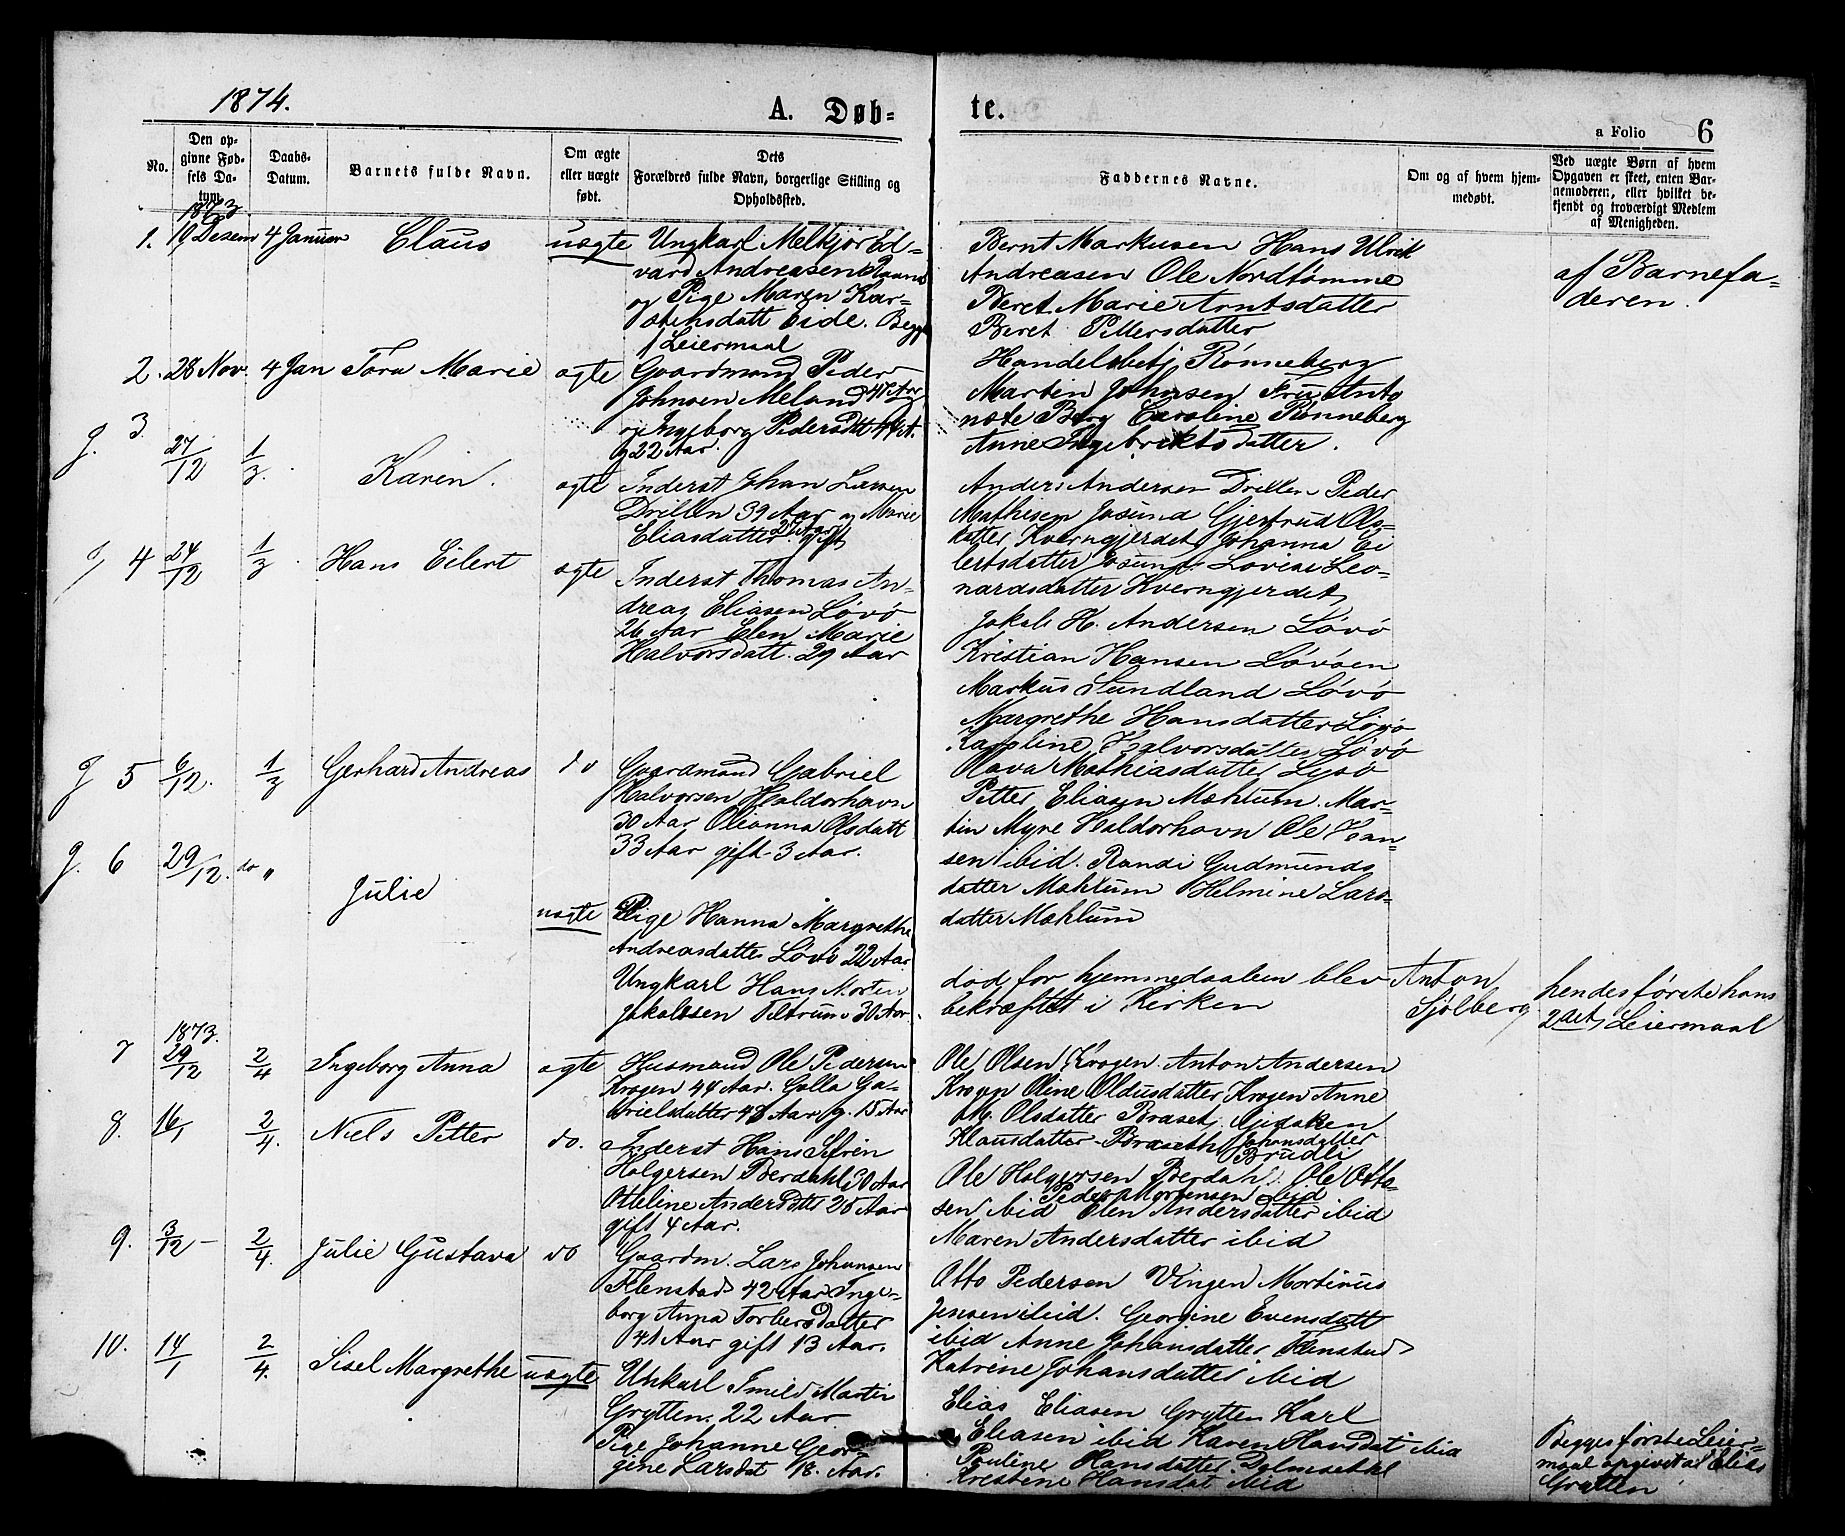 1874.
A. Døb-
te.
a Folio 6
No.
Den op-
givne Fød-
sels Da-
tum.
Daabs-
Datum.
Barnets fulde Navn.
Om ægte
eller uægte
født.
Dets
Forældres fulde Navn, borgerlige Stilling og
Opholdssted.
Faddernes Navne.
Om og af hvem hjem-
medøbt.
Ved uægte Børn af hvem
Opgaven er skeet, enten Bar-
nemoderen, eller hvilket be-
kjendt og troværdigt Medlem
af Menigheden.
1873
1. 19 Desem 4 Januar Claus uægte
Ungkarl Melkjør Ed-
vard Andreasen
og Pige Maren Kar-
datt Eide. Begge
Leiermaal
Bernt Markusen Hans Ulrik
Andreasen Ole Nordtømme
Beret Marie Arntsdatter
Beret Pettersdatter
af Barnefa-
deren.
2. 28 Nov. 4 Jan Tora Marie ægte
Gaardmand Peder
Johnsen Meland 47 Aar
og Ingeborg Pedersdtt
g 22 Aar.
Handelsbetj Rønneberg
Martin Johnsen Fru Anto
nete Berg Caroline Rønneberg
Anne Ingebriktsdatter.
g. 3 27/12 1/3. Karen. ægte
Inderst Johan Larsen
Drillen 39 Aar og Marie
Eliasdatter 27 Aar gift
Anders Andersen Drillen Peder
Mathisen Jøsund Gjertrud Ols-
datter Kverngjerdet Johanna Ei
lertsdatter Jøsund Lovise Leo-
nardsdatter Kverngjerdet
g 4 24/12 1/3 Hans Eilert ægte
Inderst Thomas An-
dreas Eliasen Løvø
26 Aar Elen Marie
Halvorsdatt. 29 Aar
Jakob H. Andersen Løvø
Kristian Hansen Løvøen
Markus Sundland Løvø
Margrethe Hansdatter Løvø
Karoline Halvorsdatter Løvø
g 5 6/12. 1/3 Gerhard Andreas do
Gaardmand Gabriel
Halvorsen Haldorhavn
30 Aar Olianna Olsdatt
33 Aar gift 3 Aar.
Olava Mathiasdatter Lysø
Petter Eliasen Mæhlum. Mar-
tin Myre Haldorhavn Ole Han-
sen ibid. Randi Gudmunds
datter Mæhlum Helmine Lars-
datter Mæhlum
g. 6 29/12. do " Julie uægte
Pige Hanna Margrethe
Andreasdatter Løvø 22 Aar
Ungkarl Hans Morten
Jakobsen 30 Aar.
død, for hjemmedaaben blev
bekræftet i Kirken
Anton
Sjølberg
hendes første hans
2det Leiermaal
1873.
7 29/12 2/4 Ingeborg Anna ægte
Husmand Ole Pedersen
Krogen 44 Aar. Golla Ga-
brielsdatter 43 Aar g. 15 Aar
Ole Olsen Krogen. Anton Andersen
Krogen Oline Oldusdatter Krogen Anne
M. Olsdatter Braset.
Klausdatter Braseth Johansdatter
Brudli
8. 16/1 2/4. Niels Petter do.
Inderst Hans Sefrin
Holgersen Berdahl 30 Aar
Otteline Andersdtt 25 Aar
gift 4 Aar.
Ole Holgersen Berdahl. Ole Otte-
Peder Mortensen ibid
sen ibid Elen Andersdatter ibid
Maren Andersdatter ibid
9. 3/12 2/4. Julie Gustava do
Gaardm. Lars Johansen
Flenstad 42 Aar Inge-
borg Anna Torbersdatter
41 Aar gift 13 Aar.
Otto Pedersen Vingen Mortinus
Jensen ibid. Georgine Evensdatt
ibid Anne Johansdatter Flenstad
Katrine Johansdatter ibid
10. 14/1 2/4. Sisel Margrethe uægte
Unkarl Emil Martin
Grytten. 22 Aar
Pige Johanne Geor-
gine Larsdat 18. Aar.
Elias Eliasen Grytten Karl
Eliasen ibid Karen Hansdat ibid
Pauline Hansdatter
Kristine Hansdat ibid
Begges første Leier-
maal opgivet af Elias
Grytten